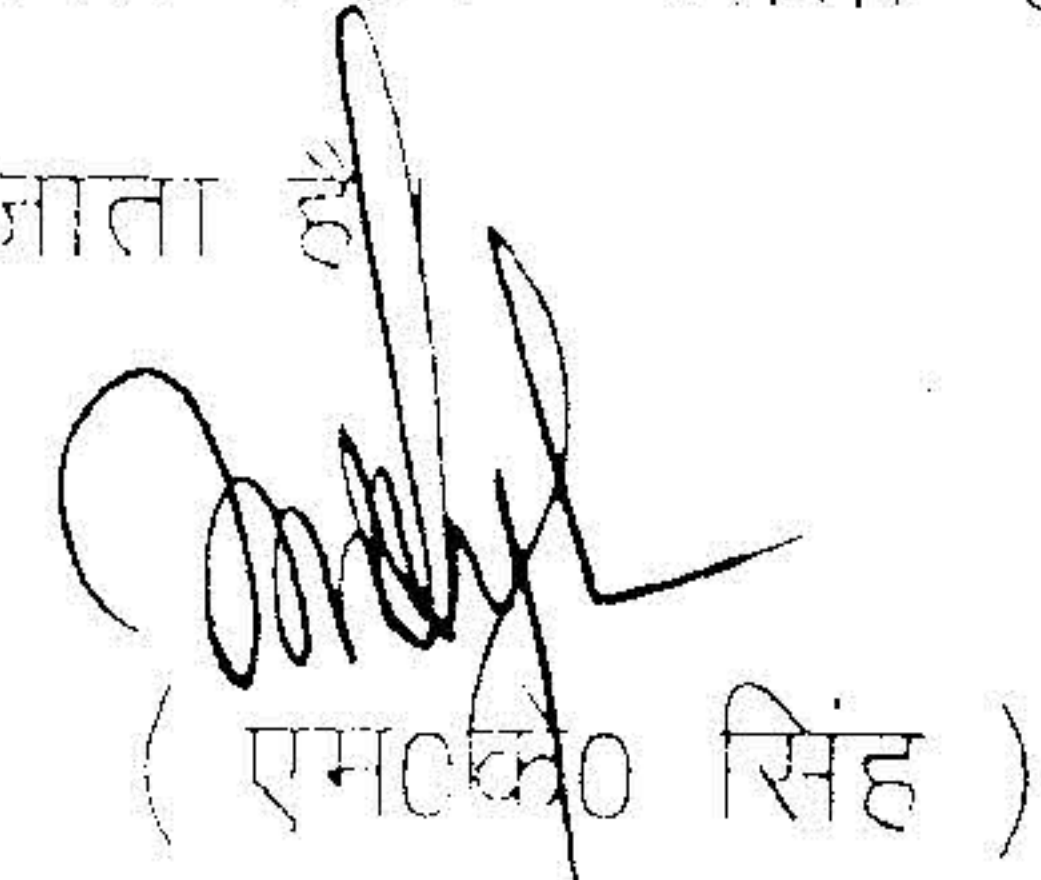 जाता है
( एम०के० सिंह )